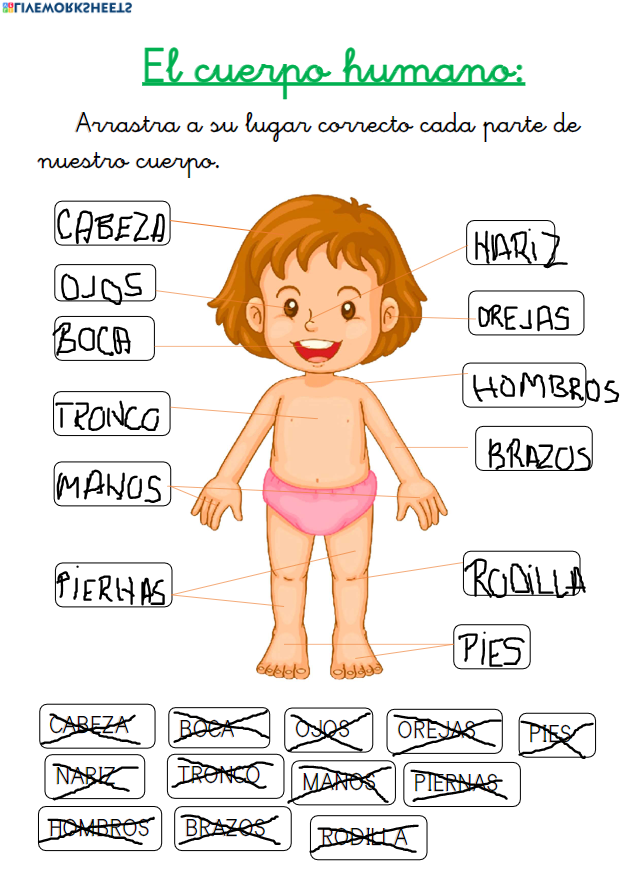 LIVEWORKSHEETS
El cuerpo humano:
Arrastra a su lugar correcto cada parte de
nuestro cuerpo.
CABEZA
HARIZ
OJOS
OREJAS
BOCA
HOMBROS
TRONCO
BRAZOS
MANOS
PIERHAS
RODILLA
PIES
CABEZA BOCA OJOS OREJAS PIES
NARIZ TRONCO MANOS PIERNAS
HOMBROS BRAZOS RODILLA